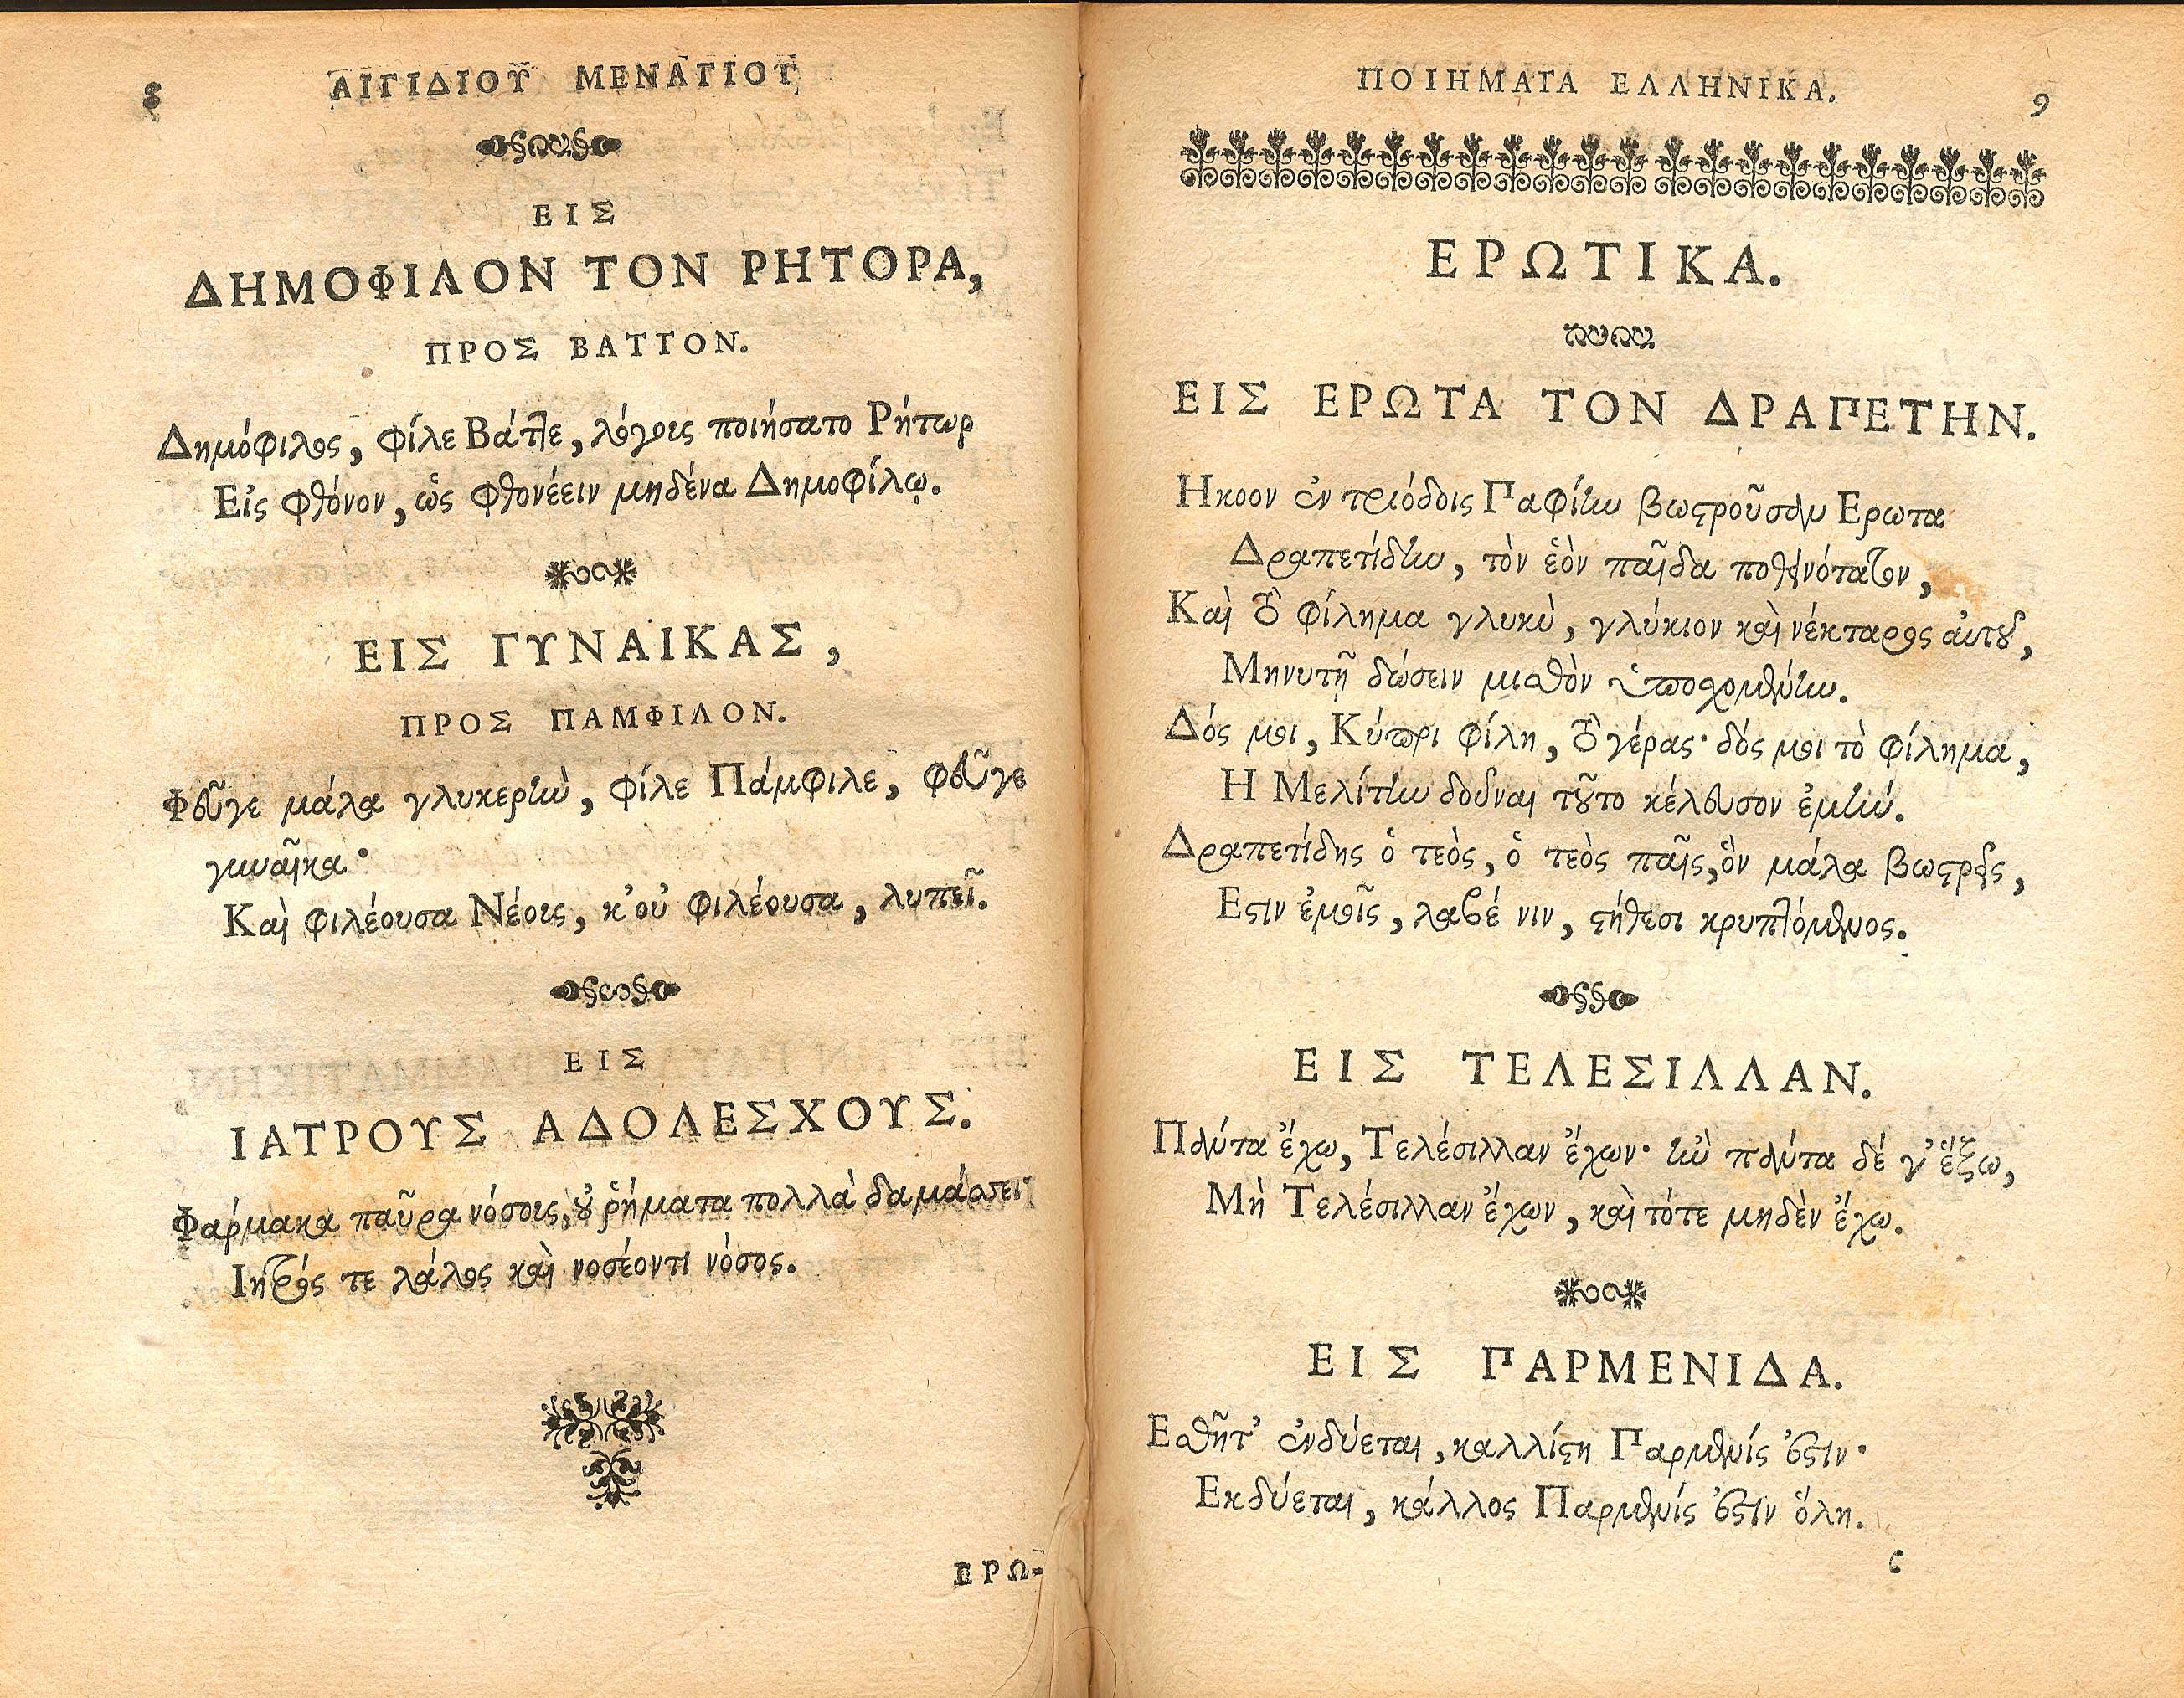 8
ΑΙΓΙΔΙΟΥ ΜΕΝΑΓΙΟΥ
ΕΙΣ
ΔΗΜΟΦΙΛΟΝ ΤΟΝ ΡΗΤΟΡΑ,
ΠΡΟΣ ΒΑΤΤΟΝ.
Δημόφιλος, φίλε Βάττε, λόγοις ποιήσατο Ρήτωρ
Εἰς φθόνον, ὡς φθονέειν μηδένα Δημοφίλῳ.
ΕΙΣ ΓΥΝΑΙΚΑΣ,
ΠΡΟΣ ΠΑΜΦΙΛΟΝ.
Φεῦγε μάλα γλυκερὴν, φίλε Πάμφιλε, φεῦγε
γυναῖκα·
Καὶ φιλέουσα Νέοις, κ'οὐ φιλέουσα, λυπεῖ.
ΕΙΣ
ΙΑΤΡΟΥΣ ΑΔΟΛΕΣΧΟΥΣ.
Φάρμακα παῦρα νόσοις, οὐ ῥήματα πολλὰ δαμάσσει·
Ιητρός τε λάλος καὶ νοσέοντι νόσος.
ΕΡΩ-
ΠΟΙΗΜΑΤΑ ΕΛΛΗΝΙΚΑ.
9
ΕΡΩΤΙΚΑ.
ΕΙΣ ΕΡΩΤΑ ΤΟΝ ΔΡΑΠΕΤΗΝ.
Ηκοον ἐν τριόδοις Παφίην βωστροῦσαν Ερωτα
Δραπετίδην, τὸν ἑὸν παῖδα ποθεινότατον,
Καὶ τὸ φίλημα γλυκὺ, γλύκιον καὶ νέκταρος αὐτοῦ,
Μηνυτῇ δώσειν μισθὸν ὑποσχομένην.
Δός μοι, Κύπρι φίλη, τὸ γέρας· δός μοι τὸ φίλημα,
Η Μελίτην δοῦναι τοῦτο κέλευσον ἐμήν.
Δραπετίδης ὁ τεὸς, ὁ τεὸς παῖς, ὃν μάλα βωστρεῖς,
Εστιν ἐμοῖς, λαβέ νιν, στήθεσι κρυπτόμενος.
ΕΙΣ ΤΕΛΕΣΙΛΛΑΝ.
Πάντα ἔχω, Τελέσιλλαν ἔχων· ἢν πάντα δέ γ' ἕξω,
Μὴ Τελέσιλλαν ἔχων, καὶ τότε μηδὲν ἔχω.
ΕΙΣ ΠΑΡΜΕΝΙΔΑ.
Εσθῆτ' ἐνδύεται, καλλίστη Παρμενίς ἐστιν·
Εκδύεται, κάλλος Παρμενίς ἐστιν ὅλη.
ς